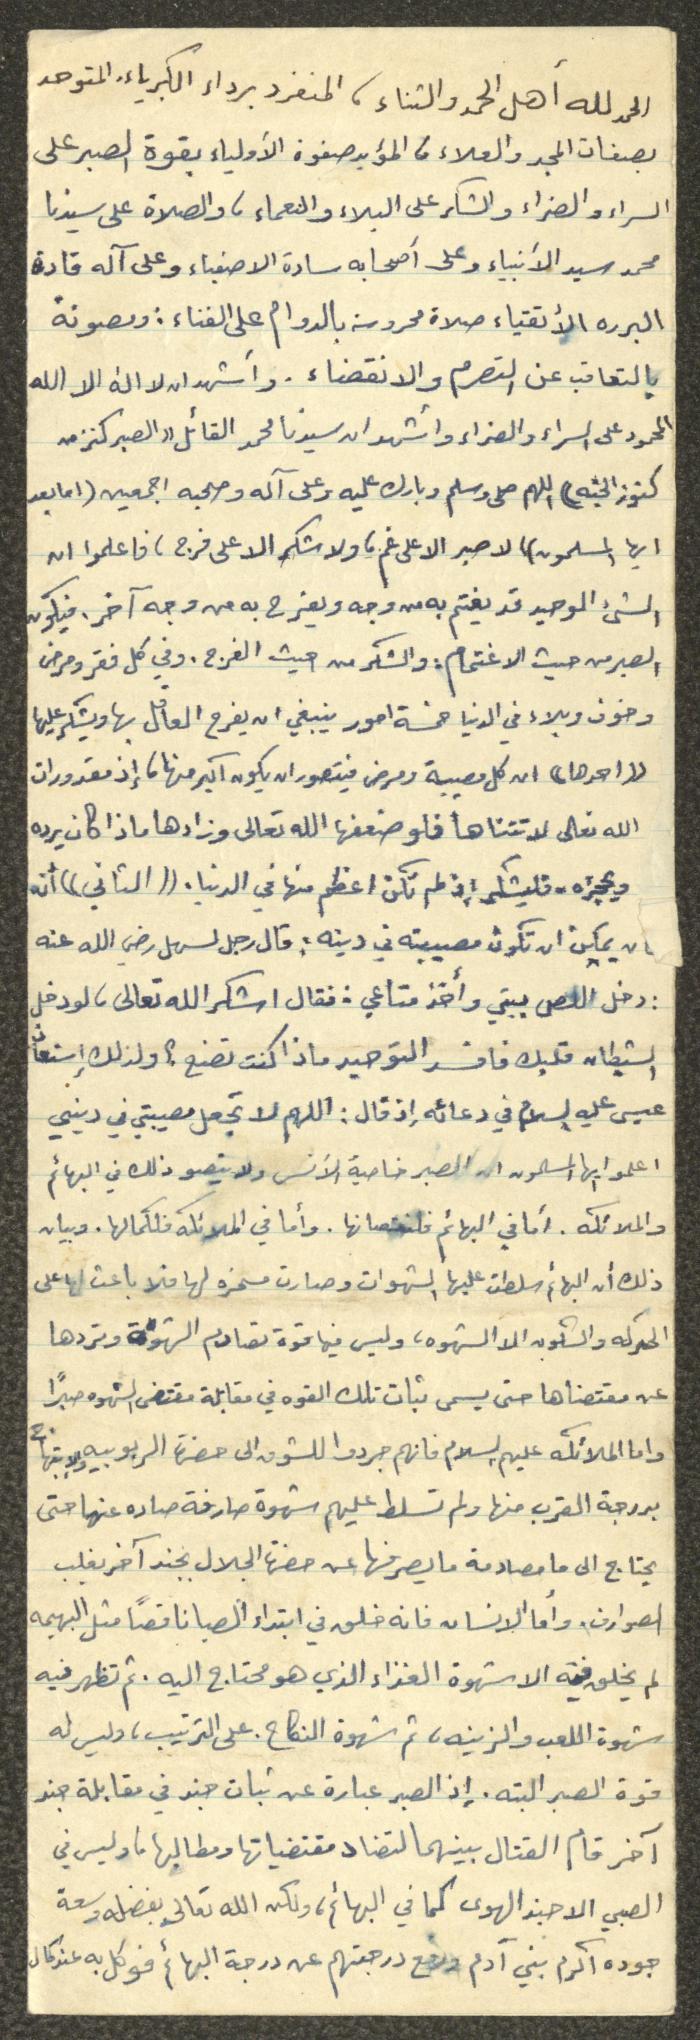 الحمد لله أهل الحمد والثناء، المنفرد برداء الكبرياء. المتوحد
بصفات المجد والعلاء، المؤيد صفوة الأولياء بقوة الصبر على
السراء والضراء والشكر على البلاء والنعماء، والصلاة على سيدنا
محمد سيد الأنبياء وعلى أصحابه سادة الاصفياء وعلى آله قادة
البرره الأتقياء صلاة محروسة بالدوام على الفناء: ومصونة
بالتعاقب عن التصرم والانقضاء. وأشهد ان لا اله الا الله
المحمود على السراء والضراء وأشهد ان سيدنا محمد القائل ((الصبر كنز من
كنوز الجنه)) اللهم صلي وسلم وبارك عليه وعلى آله وصحبه اجمعين (اما بعد
ايها المسلمون)) لا صبر الا على غم، ولا شكر الا على فرح، فاعلموا ان
الشئ الوحيد قد يغتم به من وجه ويفرح به من وجه آخر. فيكون
الصبر من حيث الاغتمام: والشكر من حيث الفرح. وفي كل فقر ومرض
وخوف وبلاء في الدنيا خمسة امور ينبغي ان يفرح العاقل بها ويشكر عليها
((احدها)) ان كل مصيبة ومرض فيتصور ان يكون اكبر منها، إذ مقدورات
الله تعالى لا تتناها فلو ضعفها الله تعالى وزادها ماذا كان يرده
ويحجزه. فليشكر إذ لم تكن اعظم منها في الدنيا. ((الثاني)) أنه
ان يمكن ان تكون مصيبته في دينه: قال رجل لسهل رضي الله عنه
: دخل اللص بيتي وأخذ متاعي: فقال اشكر الله تعالى، لو دخل
الشيطان قلبك فافسد التوحيد ماذا كنت تصنع؟ ولذلك إستعاذ
عيسى عليه السلام في دعائه إذ قال: اللهم لا تجعل مصيبتي في ديني
اعلموا ايها المسلمون ان الصبر خاصية الأنس ولا يتصو ذلك في البهائم
والملائكه. أما في البهائم فلنقصانها. وأما في الملائكة فلكمالها. وبيان
ذلك أن البهائم سلطت عليها الشهوات وصارت مسخره لها فلا باعث لها على
الحركه والسكون الا الشهوه، وليس فيها قوة تصادم الشهوة وتردها
عن مقتضاها حتى يسمى ثبات تلك القوه في مقابلة مقتضى الشهوه صبرًا
واما الملائكه عليهم السلام فانهم جردوا للشوق الى حضرة الربوبيه والإبتهاج
بدرجة القرب منها ولم تسلط عليهم شهوة صارفة صاده عنها حتى
يحتاج الى ما مصادمة ما يصرفها عن حضرة الجلال بجند آخر يغلب
الصوارف. وأما الإنسان فانه خلق في ابتداء الصبا ناقصًا مثل البهيمه
لم يخلق فيه الا شهوة الغذاء الذي هو محتاج اليه. ثم تظهر فيه
شهوة اللعب والزينه، ثم شهوة النكاح. على الترتيب، وليس له
قوة الصبر البته. إذ الصبر عبارة عن ثبات جند في مقابلة جند
آخر قام القتال بينهما لتضاد مقتضياتها ومطالبها، وليس في
الصبي الا جند الهوى كما في البهائم، ولكن الله تعالى بفضله وسعة
جوده أكرم بني آدم ورفع درجتهم عن درجة البهائم فوكل به عند كمال